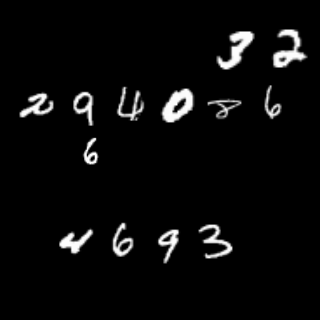 32
294086
6
4693